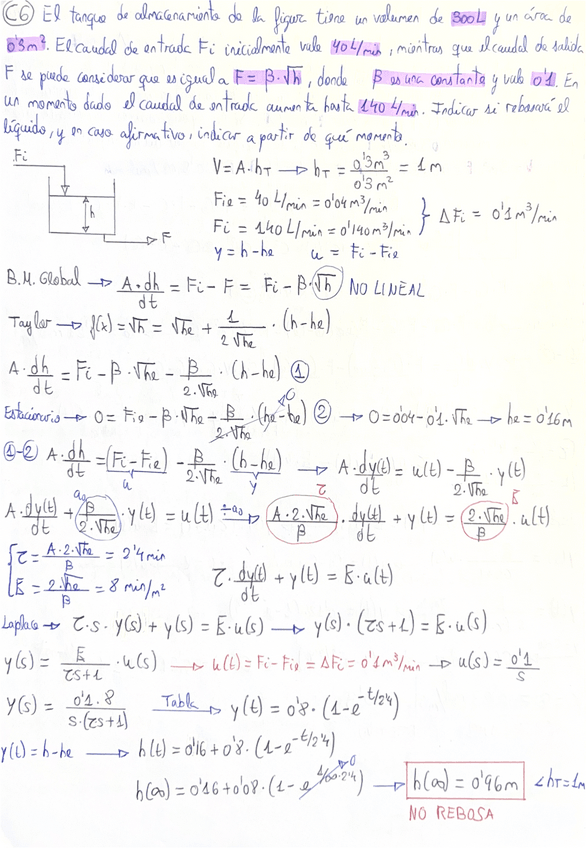 C6 El tanque de almacenamiento de la figura tiene un volumen de 300L y un área de
0'3m². El caudal de entrada Fi inicialmente vale 40 L/min, mientras que el caudal de salida
F se puede considerar que es igual a F = β·√h, donde β es una constante y vale 0'1. En
un momento dado el caudal de entrada aumenta hasta 140 L/min. Indicar si rebosará el
líquido, y en caso afirmativo, indicar a partir de qué momento.
Fi
h
F
V = A·h_T → h_T = 0'3m³/0'3m² = 1m
Fie = 40 L/min = 0'04 m³/min
Fi = 140 L/min = 0'140 m³/min } ΔFi = 0'1 m³/min
y = h-he u = Fi - Fie
B.M. Global → A·dh/dt = Fi - F = Fi - β·√h NO LINEAL
Taylor → f(x) = √h = √he + 1/(2√he) · (h-he)
A·dh/dt = Fi - β·√he - β/(2·√he) · (h-he) ①
Estacionario → 0 = Fie - β·√he - β/(2·√he) · (he-he) 0 ② → 0 = 0'04 - 0'1·√he → he = 0'16m
①-② A·dh/dt = (Fi - Fie) - β/(2·√he) · (h-he) → A·dy(t)/dt = u(t) - β/(2·√he) · y(t)
u y
a₀ τ K
A·dy(t)/dt + β/(2·√he) · y(t) = u(t) ÷a₀ → A·2·√he/β · dy(t)/dt + y(t) = 2·√he/β · u(t)
{ τ = A·2·√he/β = 2'4 min
K = 2·√he/β = 8 min/m² τ·dy(t)/dt + y(t) = K·u(t)
Laplace → τ·s·y(s) + y(s) = K·u(s) → y(s)·(τs+1) = K·u(s)
y(s) = K/(τs+1) · u(s) → u(t) = Fi - Fie = ΔFi = 0'1 m³/min → u(s) = 0'1/s
Y(s) = 0'1·8/(s·(τs+1)) Tabla → y(t) = 0'8·(1-e^(-t/2'4))
y(t) = h-he → h(t) = 0'16 + 0'8·(1-e^(-t/2'4))
h(∞) = 0'16 + 0'08·(1-e^(1/∞·2'4)) 0 → h(∞) = 0'96m < h_T = 1m
NO REBOSA